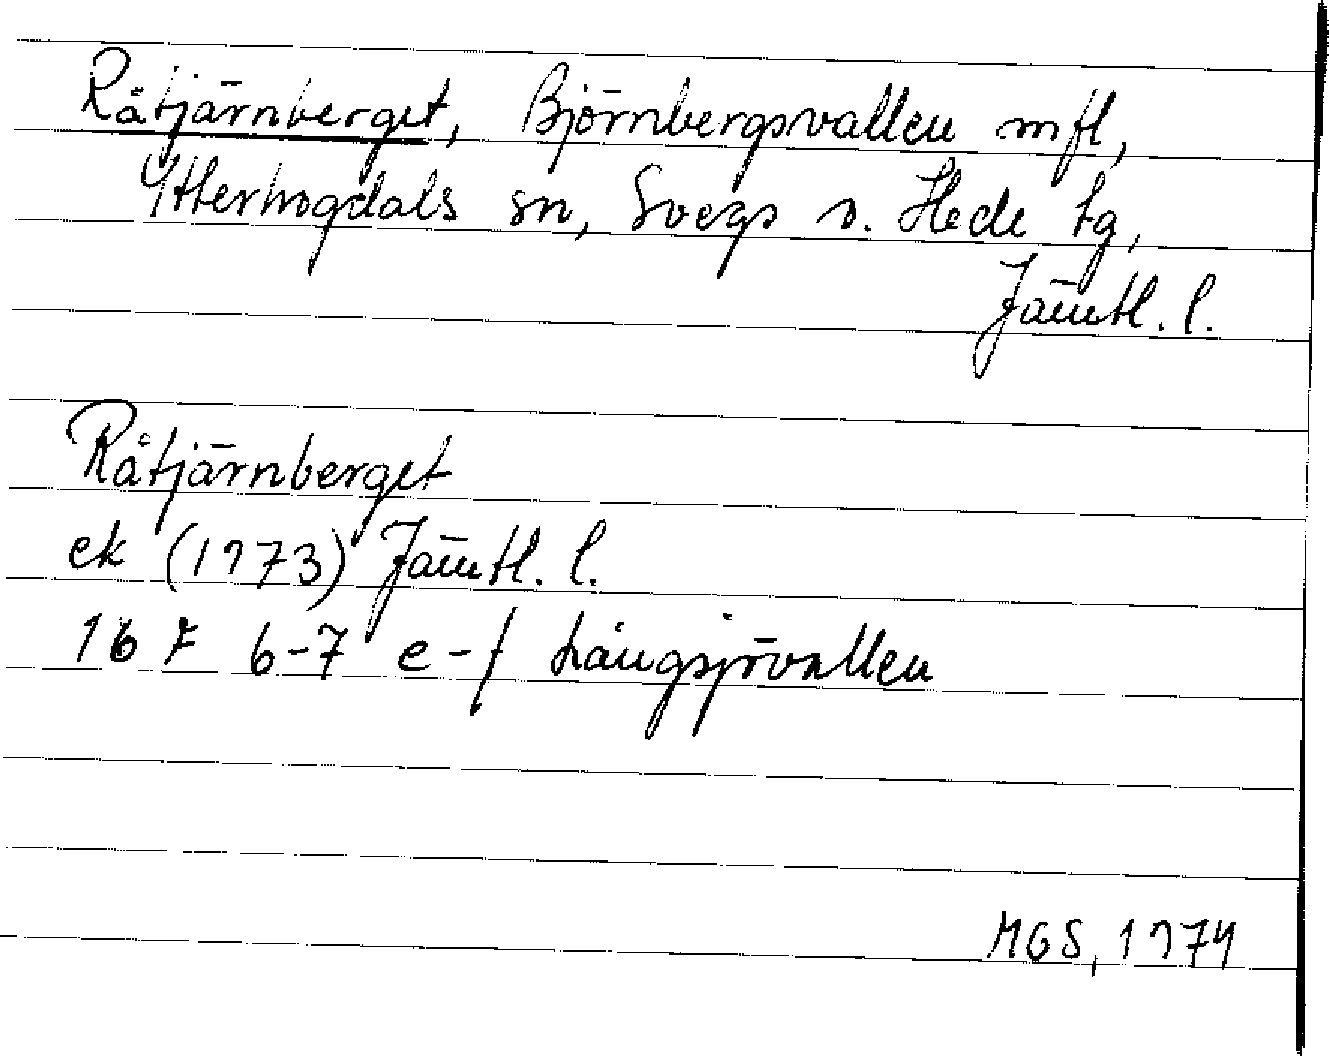 Råtjärnberget, Björnbergsvallen mfl,
Ytterhogdals sn, Svegs o. Hede tg,
Jämtl. l.
Råtjärnberget
ek (1973) Jämtl. l.
16 F 6-7 e-f Långsjövallen
MGS, 1974